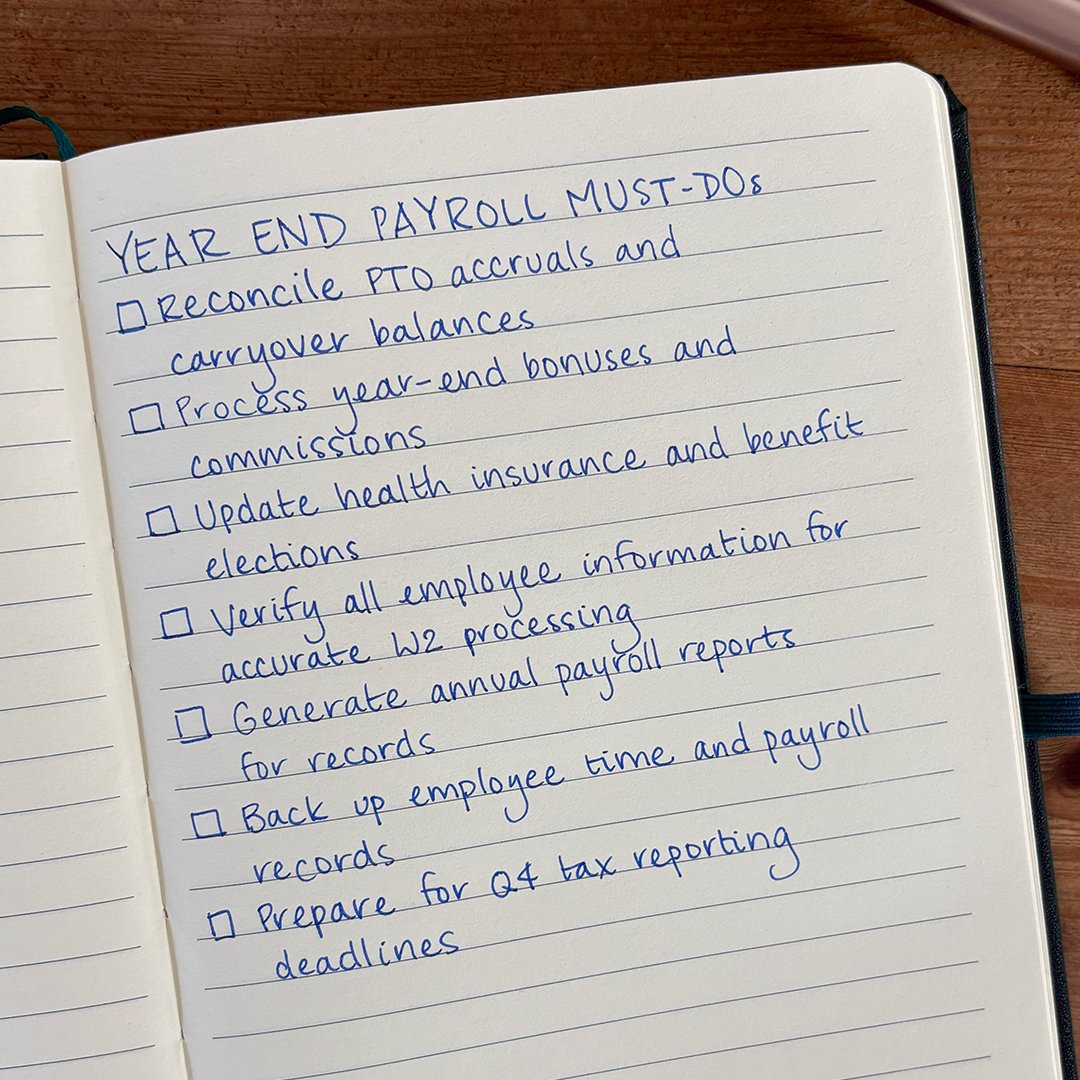 YEAR END PAYROLL MUST-DOs
☐ Reconcile PTO accruals and
carryover balances
☐ Process year-end bonuses and
commissions
☐ Update health insurance and benefit
elections
☐ Verify all employee information for
accurate W2 processing
☐ Generate annual payroll reports
for records
☐ Back up employee time and payroll
records
☐ Prepare for Q4 tax reporting
deadlines